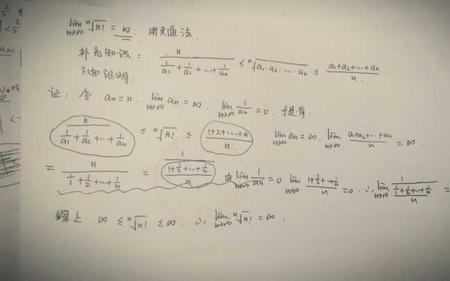 lim_{n→∞} ⁿ√n! = ∞ 用夹逼法.
补充知识: n/(1/a₁ + 1/a₂ + … + 1/aₙ) ≤ ⁿ√(a₁·a₂…aₙ) ≤ (a₁+a₂+…+aₙ)/n
证: 令 aₙ=n. lim_{n→∞} aₙ = ∞. lim_{n→∞} 1/aₙ = 0. 于是有.
n/(1/a₁ + 1/a₂ + … + 1/aₙ) ≤ ⁿ√n! ≤ (1+2+…+n)/n lim_{n→∞} aₙ = ∞. lim_{n→∞} (a₁+a₂+…+aₙ)/n = ∞.
= n/(1/1 + 1/2 + … + 1/n) = 1/((1+1/2+…+1/n)/n) 由 lim_{n→∞} 1/aₙ = 0 lim_{n→∞} (1+1/2+…+1/n)/n = 0. ∴ lim_{n→∞} 1/((1+1/2+…+1/n)/n) =
综上 ∞ ≤ ⁿ√n! ≤ ∞. ∴ lim_{n→∞} ⁿ√n! = ∞.